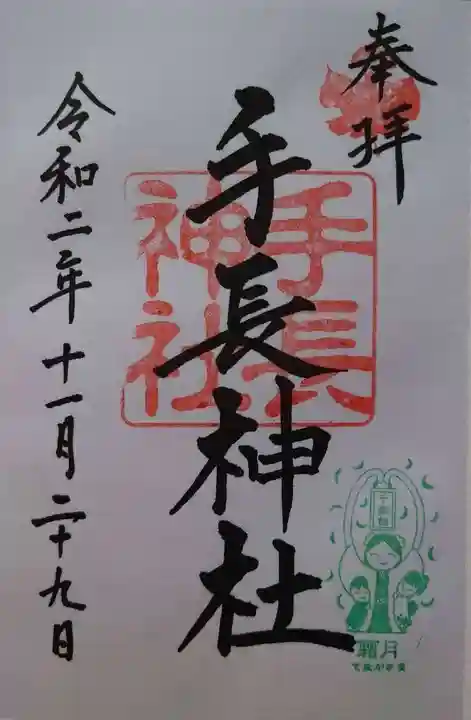 奉拝
手長神社
手長神社
令和二年十一月二十九日
霜月
てながさま